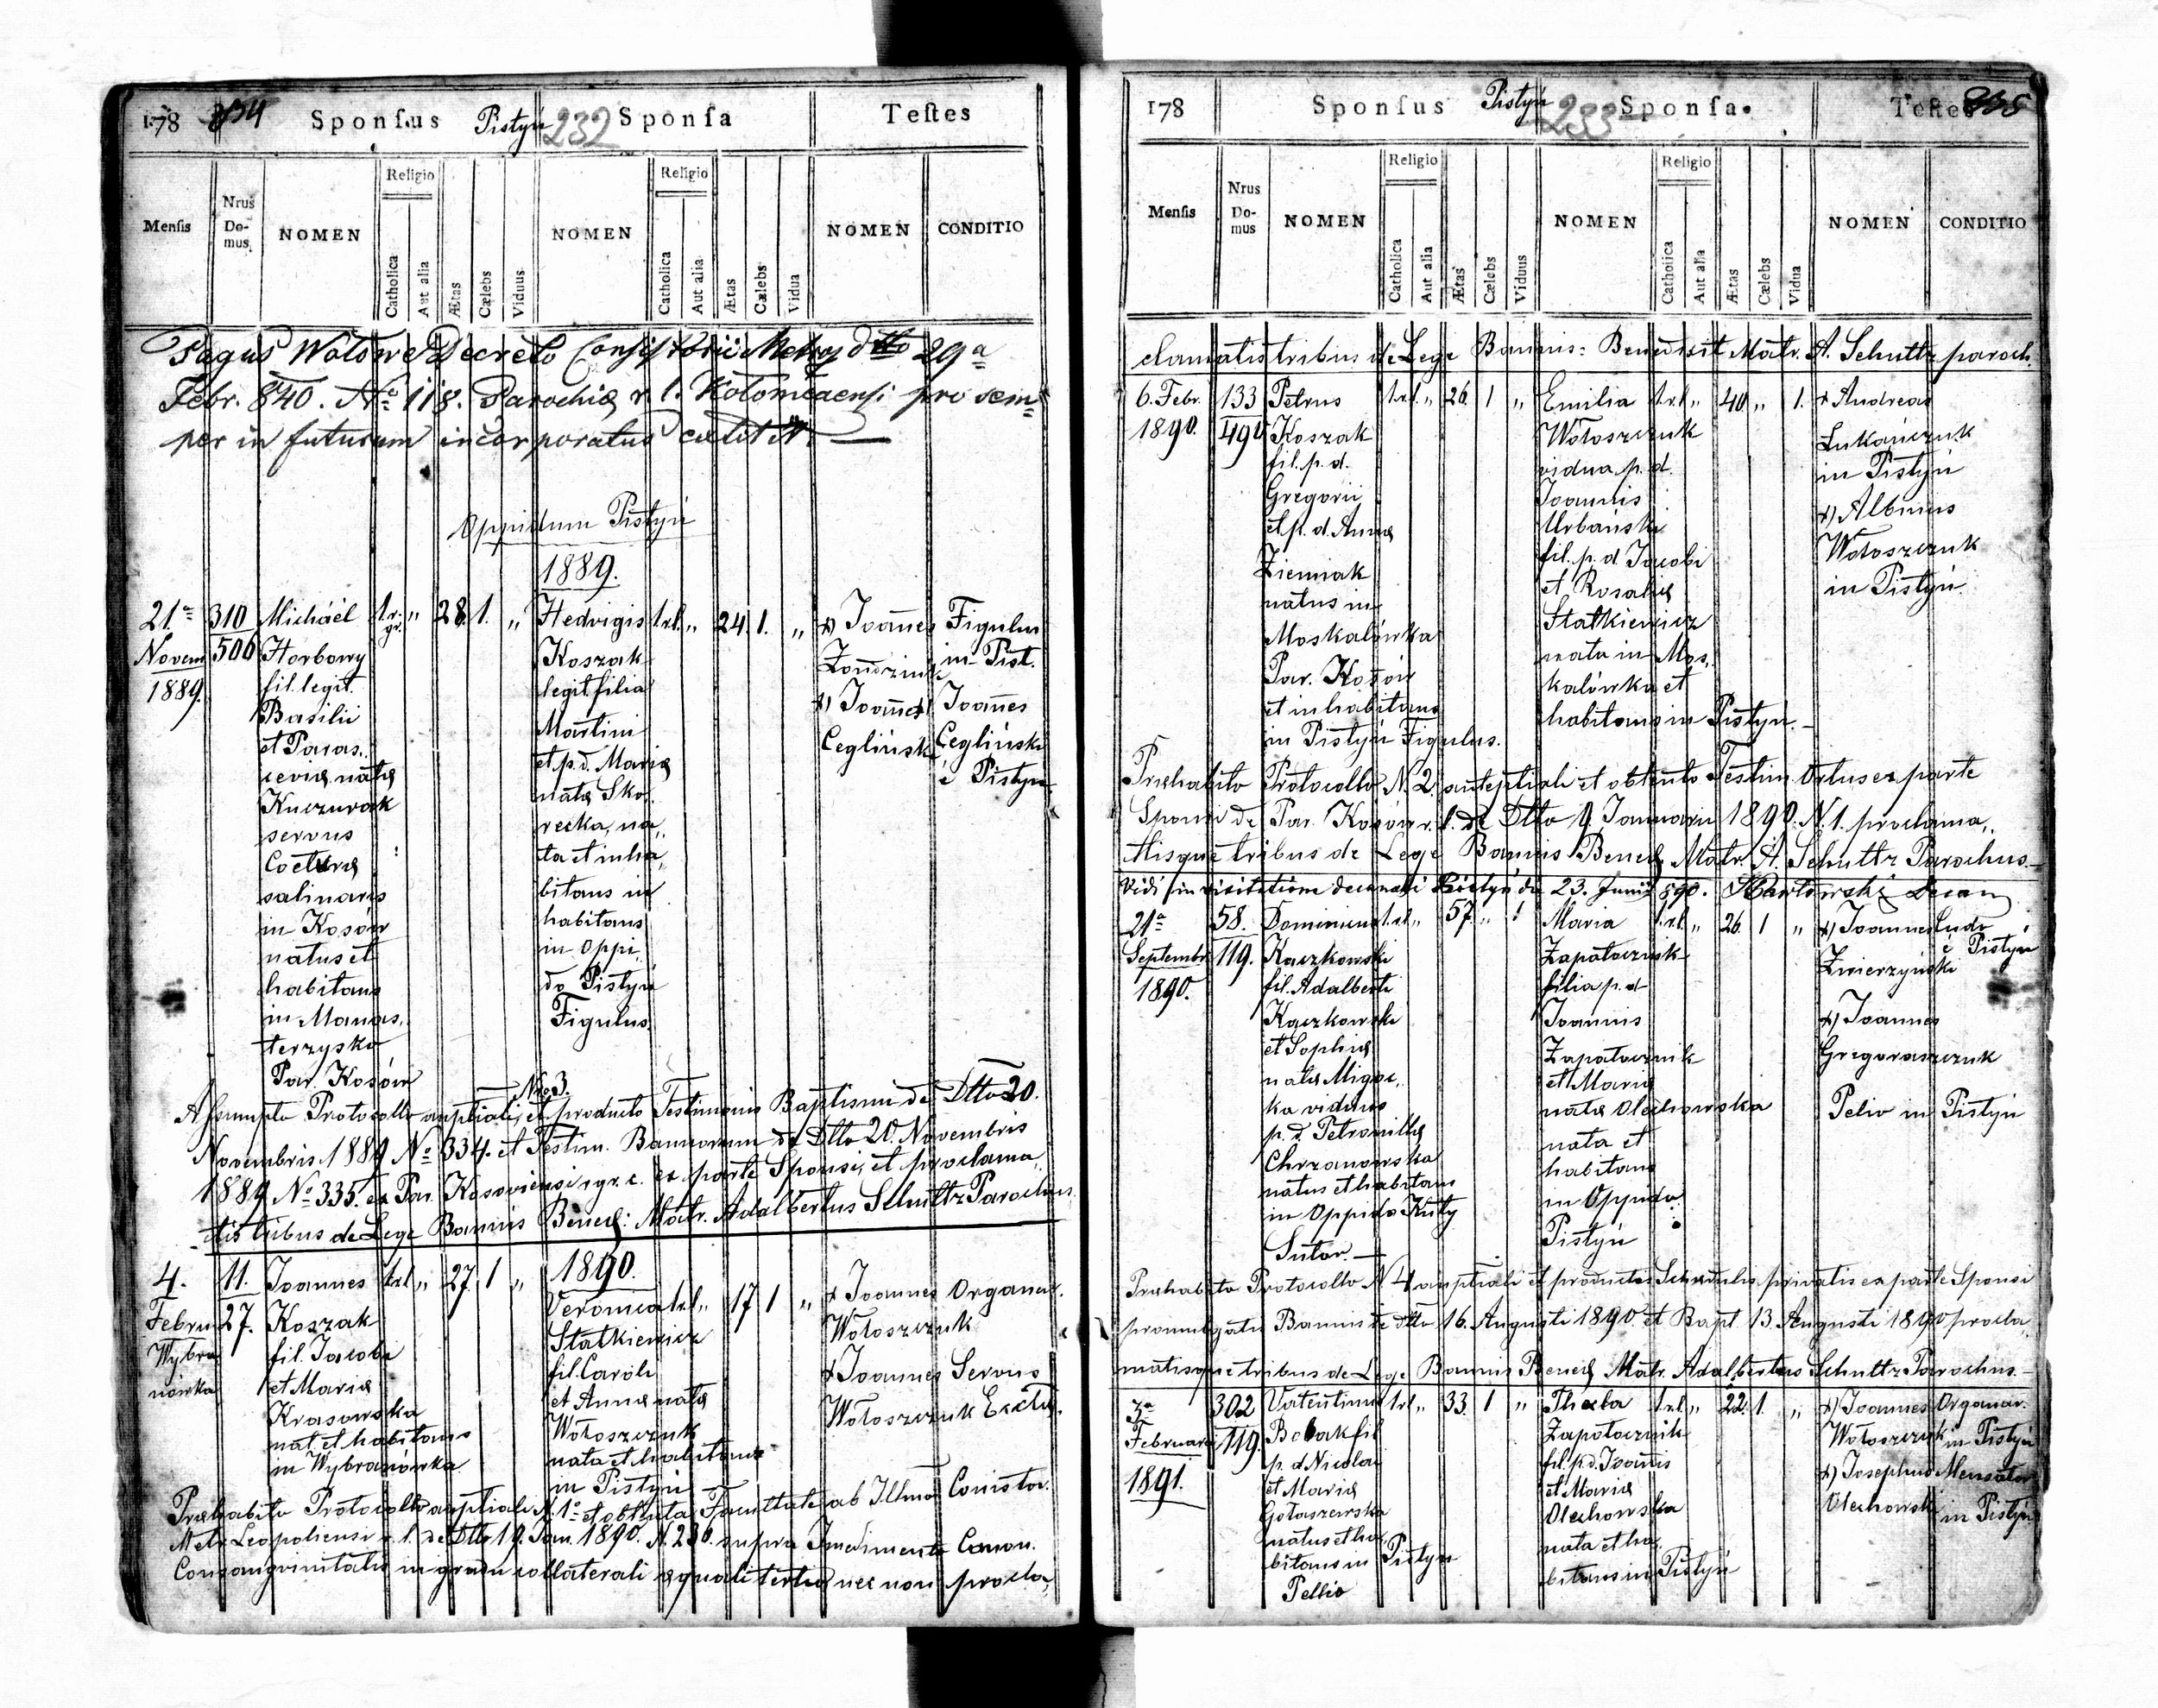 178 234 Sponsus Pistyń 232 Sponsa Testes
Mensis Nrus Domus NOMEN Religio Catholica Aut alia Ætas Cælebs Viduus NOMEN Religio Catholica Aut alia Ætas Cælebs Vidua NOMEN CONDITIO
Pagus Wołowe Decreto Consistorii Metrop dtto 29a
Febr. 840. No 118. Parochiæ r. l. Kołomeaensi pro sem=
per in futurum incorporatus
Oppidum Pistyń
1889.
21a
Novem
1889.
310
506
Michaël
Horbowy
fil. legit.
Basilii
et Paras,,
ceviæ natæ
Kuczurak
servus
Cocturæ
salinaris
in Kosów
natus et
habitans
in Manas,,
terzysko
Par. Kosów
1. r. gr. „ 28. 1. „
Hedvigis
Koszak
legit. filia
Martini
et p. d. Mariæ
natæ Sko,,
recka, na,,
ta et inha,,
bitans in
habitans
in Oppi,,
do Pistyń
Figulus.
1. r. l. „ 24. 1. „
x) Joannes
x) Joannes
Cegliński
Figulus
in Pist.
Joannes
Cegliński
è Pistyn
Nro 3.
Assumpto Protocollo nuptiali, et producto Testimonio Baptismi de Dtto 20.
Novembris 1889 No 334. et Testim. Bannorum de Dtto 20. Novembris
1889 No 335. ex Par. Kosoviensi r. gr. c. ex parte Sponsi, et proclama,,
tis tribus de Lege Bannis Bened: Matr. Adalbertus Schultz Parochus
1890.
4.
Febru
Wybra
nówka
11.
27.
Joannes
Koszak
fil. Jacobi
et Mariæ
Krasowska
nat. et habitans
in Wybranówka
1. r. l. „ 27. 1 „
Veronica
Statkiewicz
fil. Caroli
et Annæ natæ
Wołoszczuk
nata et habitans
in Pistyń
1. r. l. „ 17 1 „
x Joannes
Wołoszczuk
x Joannes
Wołoszczuk
Organar.
Servus
Præhabito Protocollo nuptiali N. 1o et obtenta Facultate ab Illmo Consistor.
Metr. Leopoliensi r. l. de Dtto 19. Jan. 1890. N. 230. supra Impedimento Canon.
Consangvinitatis in gradu collaterali æquali tertio nec non procla,,
178 Sponsus Pistyń 233 Sponsa. Testes 235
Mensis Nrus Domus NOMEN Religio Catholica Aut alia Ætas Cælebs Viduus NOMEN Religio Catholica Aut alia Ætas Cælebs Vidua NOMEN CONDITIO
clamatis tribus de Lege Bannis: Benedixit Matr. A. Schultz paroch.
6. Febr.
1890.
133
494
Petrus
Koszak
fil. p. d.
Gregorii
et p. d. Annæ
Ziemiak
natus in
Moskalówka
Par. Kosów
et inhabitans
in Pistyń Figulus.
1. r. l. „ 26. 1 „
Emilia
Wołoszczuk
vidua p. d.
Joannis
Urbański
fil. p. d. Jacobi
et Rosaliæ
Statkiewicz
nata in Mos,,
kalówka et
habitans in Pistyn.
1. r. l. „ 40. „ 1.
x Andreas
Lukańczuk
in Pistyń
x) Albinus
Wołoszczuk
in Pistyń.
Præhabito Protocollo N. 2. nuptiali et obtento Testim. Ortus ex parte
Sponsi de Par. Kosów r. l. de Dtto 9. Januarii 1890. N. 1. proclama,,
tisque tribus de Lege Bannis Bened. Matr. A. Schultz Parochus.
Vidi in visitatione decanali Pistyń die 23. Junii 890. Decan
21a
Septembr.
1890.
58.
119.
Dominicus
Kaczkowski
fil. Adalberti
Kaczkowski
et Sophiæ
natæ Migoc,,
ka viduus
p. d. Petronillæ
Chrzanowska
natus et habitans
in Oppido Kuty
Sutor.
1. r. l. „ 57. „ 1
Maria
Zapatocznik
filia p. d
Joannis
Zapatocznik
et Mariæ
natæ Olechowska
nata et
habitans
in Oppido
Pistyń
1. r. l. „ 26. 1 „
x) Joannes
Zwierzyński
x) Joannes
Gregoraszczuk
è Pistyń
Pelio in Pistyń
Præhabito Protocollo N 4 nuptiali et productis Schedulis privatis ex parte Sponsi
promulgatis Bannis de dtto 16. Augusti 1890. et Bapt. 13. Augusti 1890 procla,,
matisque tribus de Lege Bannis Bened. Matr. Adalbertus Schultz Parochus.
3a
Februarii
1891.
302
119.
Valentinus
Bobak fil
p. d Nicolai
et Mariæ
Gołaszewska
natus et ha,,
bitans in Pistyn
Pellio
1. r. l. „ 33. 1 „
Thecla
Zapotocznik
fil. p. d. Joannis
et Mariæ
Olechowska
nata et ha,,
bitans in Pistyń
1. r. l. „ 22. 1. „
x) Joannes
Wołoszczuk
x) Josephus
Olechowski
Organar.
in Pistyń
Mensator
in Pistyń